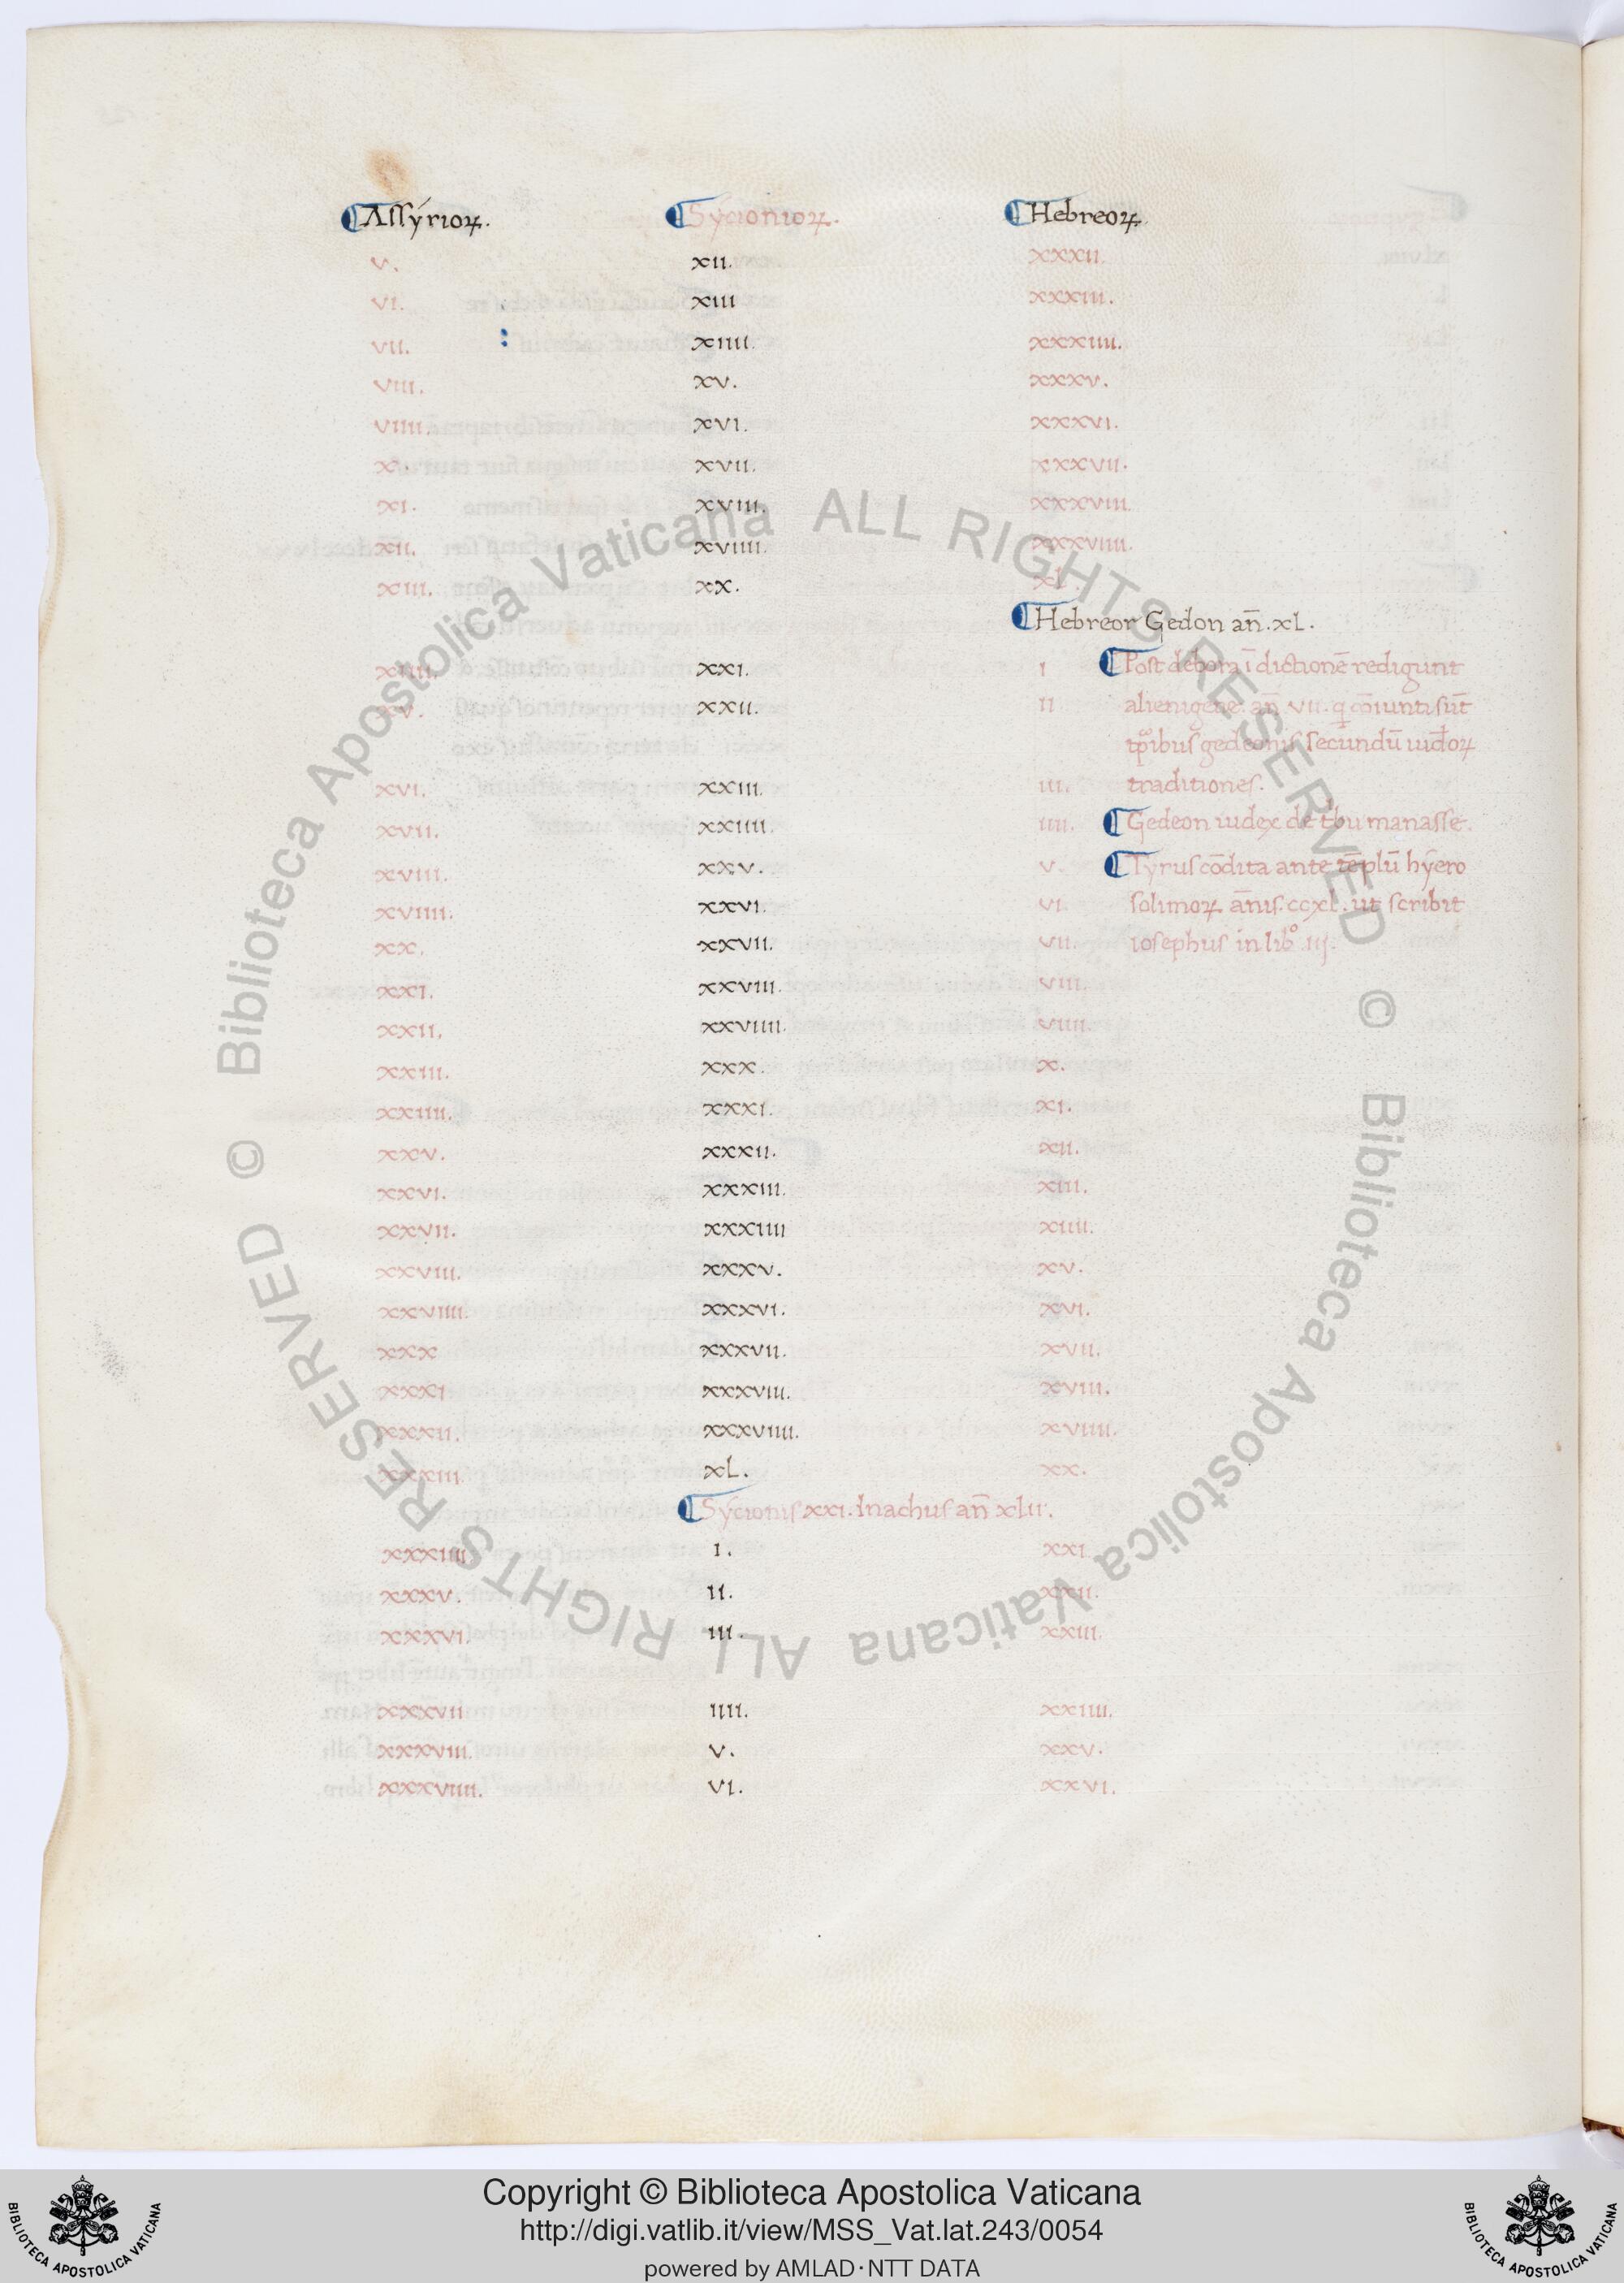 ¶Assyrioꝝ. ¶Sycionioꝝ. ¶Hebreoꝝ.
v. xii. xxxii.
vi. xiii xxxiii.
vii. xiiii. xxxiiii.
viii. xv. xxxv.
viiii. xvi. xxxvi.
x. xvii. xxxvii.
xi. xviii. xxxviii.
xii. xviiii. xxxviiii.
xiii. xx. xl.
¶Hebreor Gedon an̄.xl.
xiiii. xxi. i ¶Post debora ī dictionē redigunt
xv. xxii. ii alienigene. an̄ vii. q̄ cōiunti sūt
tp̄ibus gedeonis secundū iudeoꝝ
xvi. xxiii. iii. traditiones.
xvii. xxiiii. iiii. ¶Gedeon iudex de tbu manasse.
xviii. xxv. v. ¶Tyrus cōdita ante tēplū hyero
xviiii. xxvi. vi. solimoꝝ an̄is.ccxl. ut scribit
xx. xxvii. vii. iosephus in libº.iij.
xxi. xxviii. viii.
xxii. xxviiii. viiii.
xxiii. xxx. x.
xxiiii. xxxi. xi.
xxv. xxxii. xii.
xxvi. xxxiii. xiii.
xxvii. xxxiiii xiiii.
xxviii. xxxv. xv.
xxviiii. xxxvi. xvi.
xxx xxxvii. xvii.
xxxi xxxviii. xviii.
xxxii. xxxviiii. xviiii.
xxxiii. xL. xx.
¶Sycionis xxi. Inachus an̄ xlii.
xxxiiii i. xxi
xxxv. ii. xxii.
xxxvi. iii. xxiii.
xxxvii iiii. xxiiii.
xxxviii. v. xxv.
xxxviiii. vi. xxvi.
© Biblioteca Apostolica Vaticana ALL RIGHTS RESERVED
© Biblioteca Apostolica Vaticana ALL RIGHTS RESERVED
Copyright © Biblioteca Apostolica Vaticana
http://digi.vatlib.it/view/MSS_Vat.lat.243/0054
powered by AMLAD·NTT DATA
BIBLIOTECA APOSTOLICA VATICANA
BIBLIOTECA APOSTOLICA VATICANA